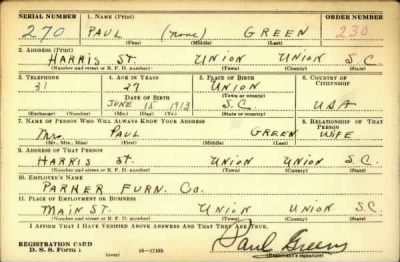 SERIAL NUMBER 1. NAME (Print) ORDER NUMBER
270 PAUL (none) GREEN 230
(First) (Middle) (Last)
2. ADDRESS (Print)
HARRIS ST. UNION UNION S.C.
(Number and street or R. F. D. number) (Town) (County) (State)
3. TELEPHONE 4. AGE IN YEARS 5. PLACE OF BIRTH 6. COUNTRY OF CITIZENSHIP
31 27 UNION
DATE OF BIRTH (Town or county)
JUNE 15 1913 S.C. USA
(Exchange) (Number) (Mo.) (Day) (Yr.) (State or country)
7. NAME OF PERSON WHO WILL ALWAYS KNOW YOUR ADDRESS 8. RELATIONSHIP OF THAT PERSON
Mrs. PAUL GREEN WIFE
(Mr., Mrs., Miss) (First) (Middle) (Last)
9. ADDRESS OF THAT PERSON
HARRIS St. UNION UNION S.C.
(Number and street or R. F. D. number) (Town) (County) (State)
10. EMPLOYER'S NAME
PARKER FURN. CO.
11. PLACE OF EMPLOYMENT OR BUSINESS
MAIN ST. UNION UNION S.C.
(Number and street or R. F. D. number) (Town) (County) (State)
I AFFIRM THAT I HAVE VERIFIED ABOVE ANSWERS AND THAT THEY ARE TRUE.
REGISTRATION CARD
D. S. S. Form 1 (over) Paul Green
(Registrant's signature)